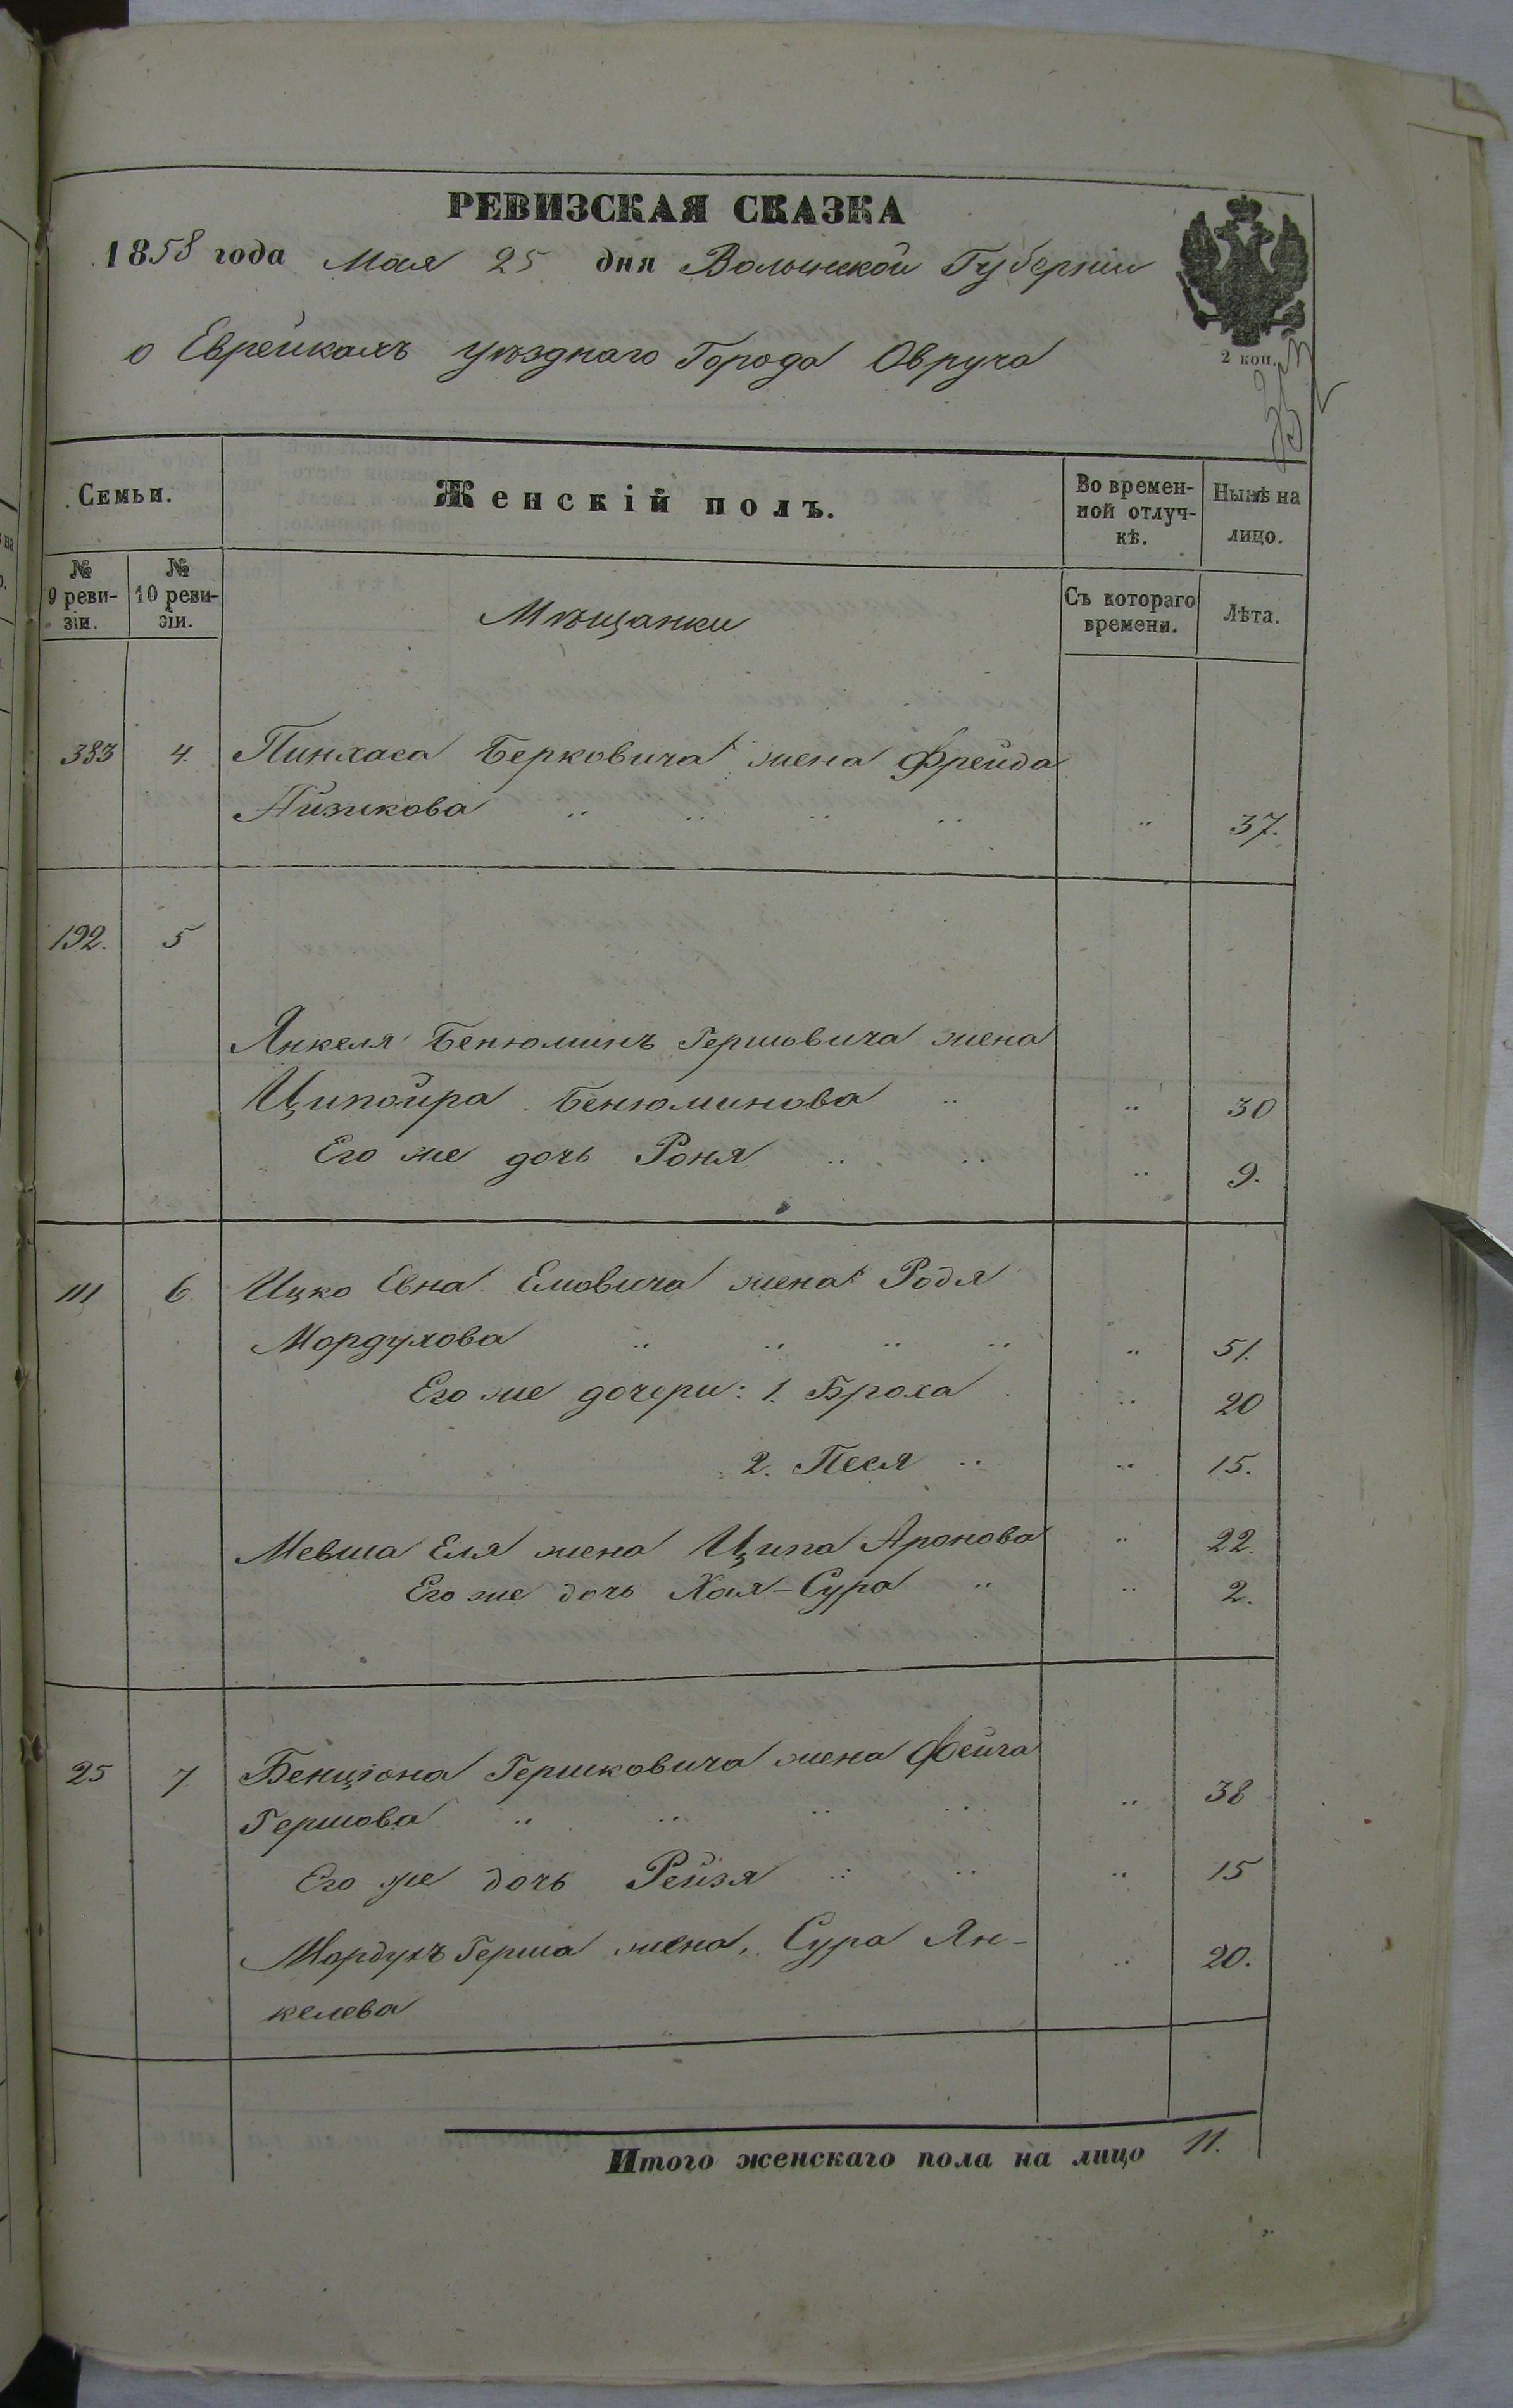 РЕВИЗСКАЯ СКАЗКА
1858 года Мая 25 дня Волынской Губерніи
2 коп.
о Еврейкахъ уѣзднаго Города Овруча
Семьи.
Женскій полъ.
Во времен-
ной отлуч-
кѣ.
Нынѣ на
лицо.
№
9 реви-
зіи.
№
10 реви-
зіи.
Мѣщанки
Съ котораго
времени.
Лѣта.
383 4. Пинхаса Берковича жена Фрейда
Айзикова .. .. .. .. .. 37.
192. 5
Янкеля Бенюминъ Гершовича жена
Ципойра Бенюминова .. .. 30
Его же дочь Роня .. .. .. 9.
111 6 Ицко Евна Елювича жена Родя
Мордухова .. .. .. .. .. 51.
Его же дочери: 1. Броха .. 20
2. Песя .. .. 15.
Мевша Еля жена Ципа Аронова .. 22.
Его же дочь Хая-Сура .. .. 2.
25 7 Бенціона Гершковича жена Фейга
Гершова .. .. .. .. .. 38
Его же дочь Рейзя .. .. .. 15
Мордухъ Герша жена, Сура Ян- .. 20.
келева
Итого женскаго пола на лицо 11.